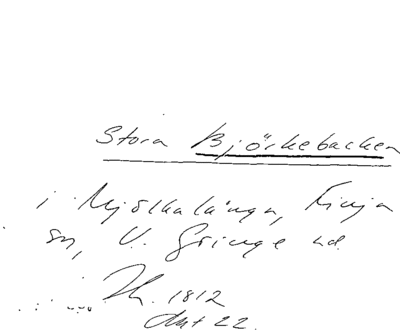 Stora Björkebacken
i Mjölkalånga, Finja
sn, V. Göinge hd.
1812
22.